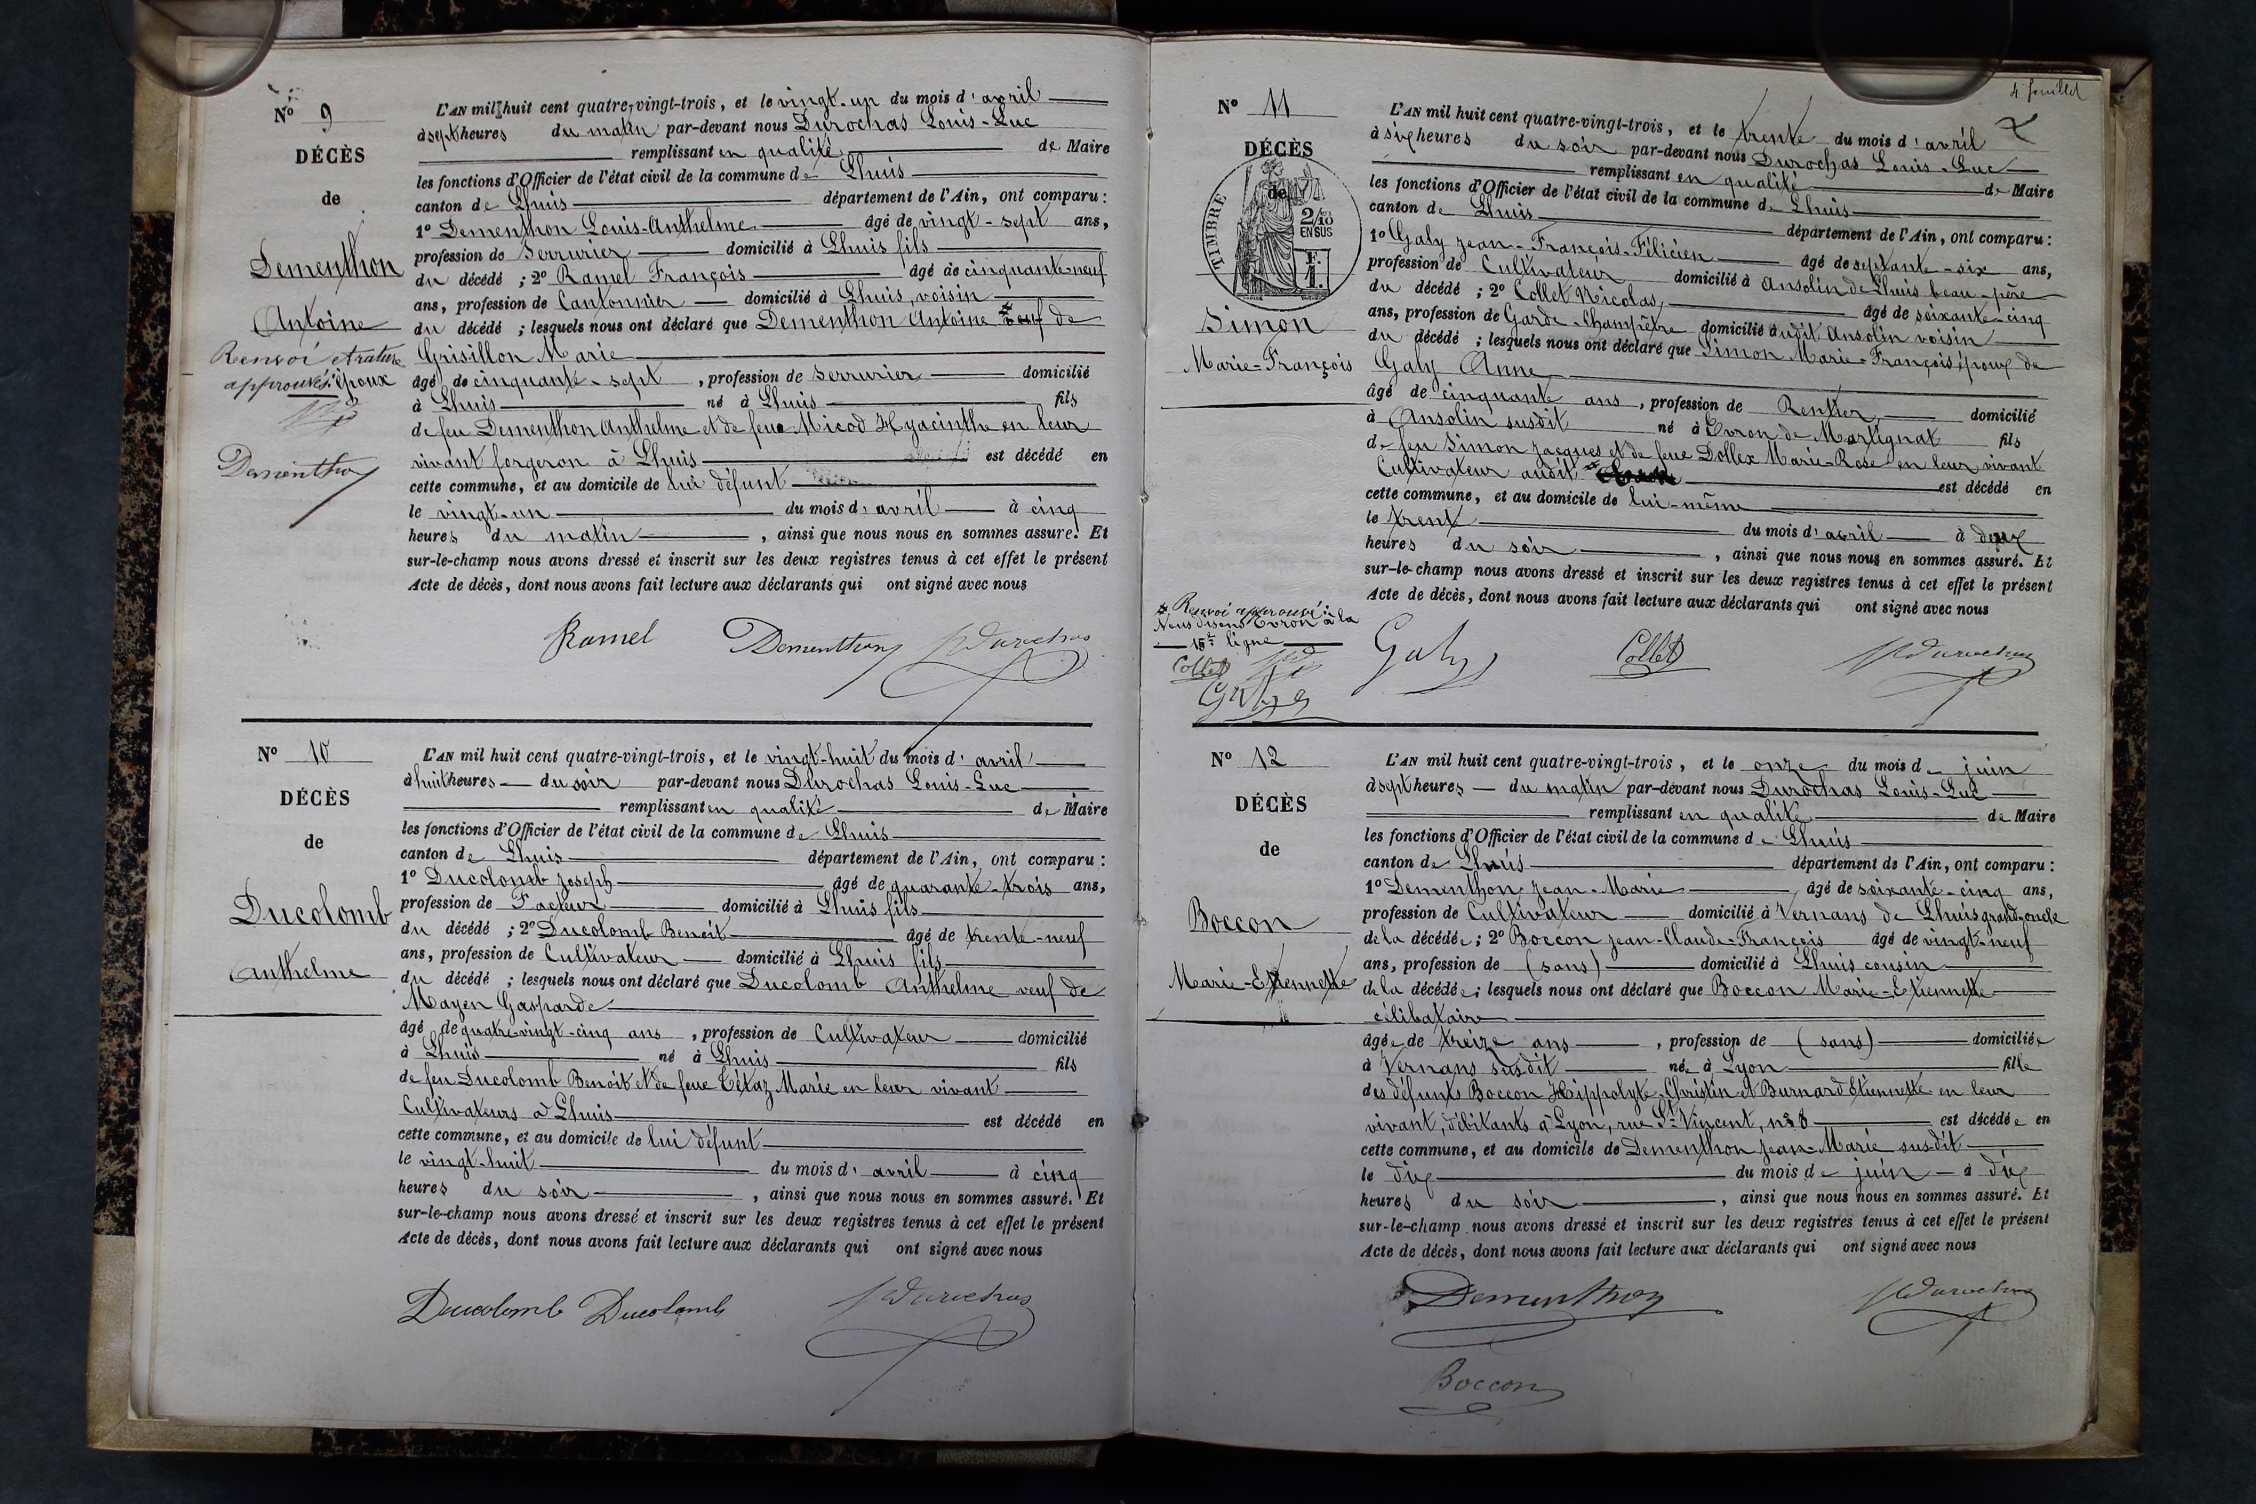 N° 9
DÉCÈS
de
Dementhon
Antoine
Renvoi et rature
approuvés: époux
Dementhon
L'AN mil huit cent quatre-vingt-trois, et le vingt-un du mois d'avril
à sept heures du matin par-devant nous Durochas Louis-Luc
remplissant en qualité de Maire
les fonctions d'Officier de l'état civil de la commune de Lhuis
canton de Lhuis département de l'Ain, ont comparu :
1° Dementhon Louis-Anthelme âgé de vingt-sept ans,
profession de Serrurier domicilié à Lhuis fils
du décédé ; 2° Ramel François âgé de cinquante-neuf
ans, profession de Cantonnier domicilié à Lhuis, voisin
du décédé ; lesquels nous ont déclaré que Dementhon Antoine veuf de
Grisillon Marie
âgé de cinquante-sept, profession de Serrurier domicilié
à Lhuis né à Lhuis fils
de feu Dementhon Anthelme et de feue Micod Hyacinthe en leur
vivant forgeron à Lhuis est décédé en
cette commune, et au domicile de lui défunt
le vingt-un du mois d'avril à cinq
heures du matin, ainsi que nous nous en sommes assuré. Et
sur-le-champ nous avons dressé et inscrit sur les deux registres tenus à cet effet le présent
Acte de décès, dont nous avons fait lecture aux déclarants qui ont signé avec nous
Ramel Dementhon Durochas
N° 10
DÉCÈS
de
Ducolomb
Anthelme
L'AN mil huit cent quatre-vingt-trois, et le vingt-huit du mois d'avril
à huit heures du soir par-devant nous Durochas Louis-Luc
remplissant en qualité de Maire
les fonctions d'Officier de l'état civil de la commune de Lhuis
canton de Lhuis département de l'Ain, ont comparu :
1° Ducolomb Joseph âgé de quarante-trois ans,
profession de Facteur domicilié à Lhuis fils
du décédé ; 2° Ducolomb Benoit âgé de trente-neuf
ans, profession de Cultivateur domicilié à Lhuis fils
du décédé ; lesquels nous ont déclaré que Ducolomb Anthelme veuf de
Mayen Gasparde
âgé de quatre-vingt-cinq ans, profession de Cultivateur domicilié
à Lhuis né à Lhuis fils
de feu Ducolomb Benoit et de feue Tétaz Marie en leur vivant
Cultivateurs à Lhuis est décédé en
cette commune, et au domicile de lui défunt
le vingt-huit du mois d'avril à cinq
heures du soir, ainsi que nous nous en sommes assuré. Et
sur-le-champ nous avons dressé et inscrit sur les deux registres tenus à cet effet le présent
Acte de décès, dont nous avons fait lecture aux déclarants qui ont signé avec nous
Ducolomb Ducolomb Durochas
4e feuillet
N° 11
DÉCÈS
de
TIMBRE
2/10
EN SUS
F.
1.
Simon
Marie-François
L'AN mil huit cent quatre-vingt-trois, et le trente du mois d'avril
à six heures du soir par-devant nous Durochas Louis-Luc
remplissant en qualité de Maire
les fonctions d'Officier de l'état civil de la commune de Lhuis
canton de Lhuis département de l'Ain, ont comparu :
1° Galy Jean-François-Félicien âgé de septante-six ans,
profession de Cultivateur domicilié à Ansolin de Lhuis beau-père
du décédé ; 2° Collet Nicolas, âgé de soixante-cinq
ans, profession de Garde-champêtre domicilié audit Ansolin voisin
du décédé ; lesquels nous ont déclaré que Simon Marie-François époux de
Galy Anne
âgé de cinquante ans, profession de Rentier domicilié
à Ansolin susdit né à Evron de Martignat fils
de feu Simon Jacques et de feue Dollex Marie-Rose en leur vivant
Cultivateur audit est décédé en
cette commune, et au domicile de lui-même
le trente du mois d'avril à deux
heures du soir, ainsi que nous nous en sommes assuré. Et
sur-le-champ nous avons dressé et inscrit sur les deux registres tenus à cet effet le présent
Acte de décès, dont nous avons fait lecture aux déclarants qui ont signé avec nous
Renvoi approuvé:
Nous disons Evron à la
15e ligne
Collet
Galy
Galy Collet Durochas
N° 12
DÉCÈS
de
Boccon
Marie-Etiennette
L'AN mil huit cent quatre-vingt-trois, et le onze du mois de juin
à sept heures du matin par-devant nous Durochas Louis-Luc
remplissant en qualité de Maire
les fonctions d'Officier de l'état civil de la commune de Lhuis
canton de Lhuis département de l'Ain, ont comparu :
1° Dementhon Jean-Marie âgé de soixante-cinq ans,
profession de Cultivateur domicilié à Vernans de Lhuis grand-oncle
de la décédée ; 2° Boccon Jean-Claude-François âgé de vingt-neuf
ans, profession de (sans) domicilié à Lhuis cousin
de la décédée ; lesquels nous ont déclaré que Boccon Marie-Etiennette
célibataire
âgée de treize ans, profession de (sans) domiciliée
à Vernans susdit née à Lyon fille
des défunts Boccon Hippolyte-Christin et Burnard Etiennette en leur
vivant, débitants à Lyon, rue St Vincent, n° 8 est décédée en
cette commune, et au domicile de Dementhon Jean-Marie susdit
le dix du mois de juin à dix
heures du soir, ainsi que nous nous en sommes assuré. Et
sur-le-champ nous avons dressé et inscrit sur les deux registres tenus à cet effet le présent
Acte de décès, dont nous avons fait lecture aux déclarants qui ont signé avec nous
Dementhon Durochas
Boccon